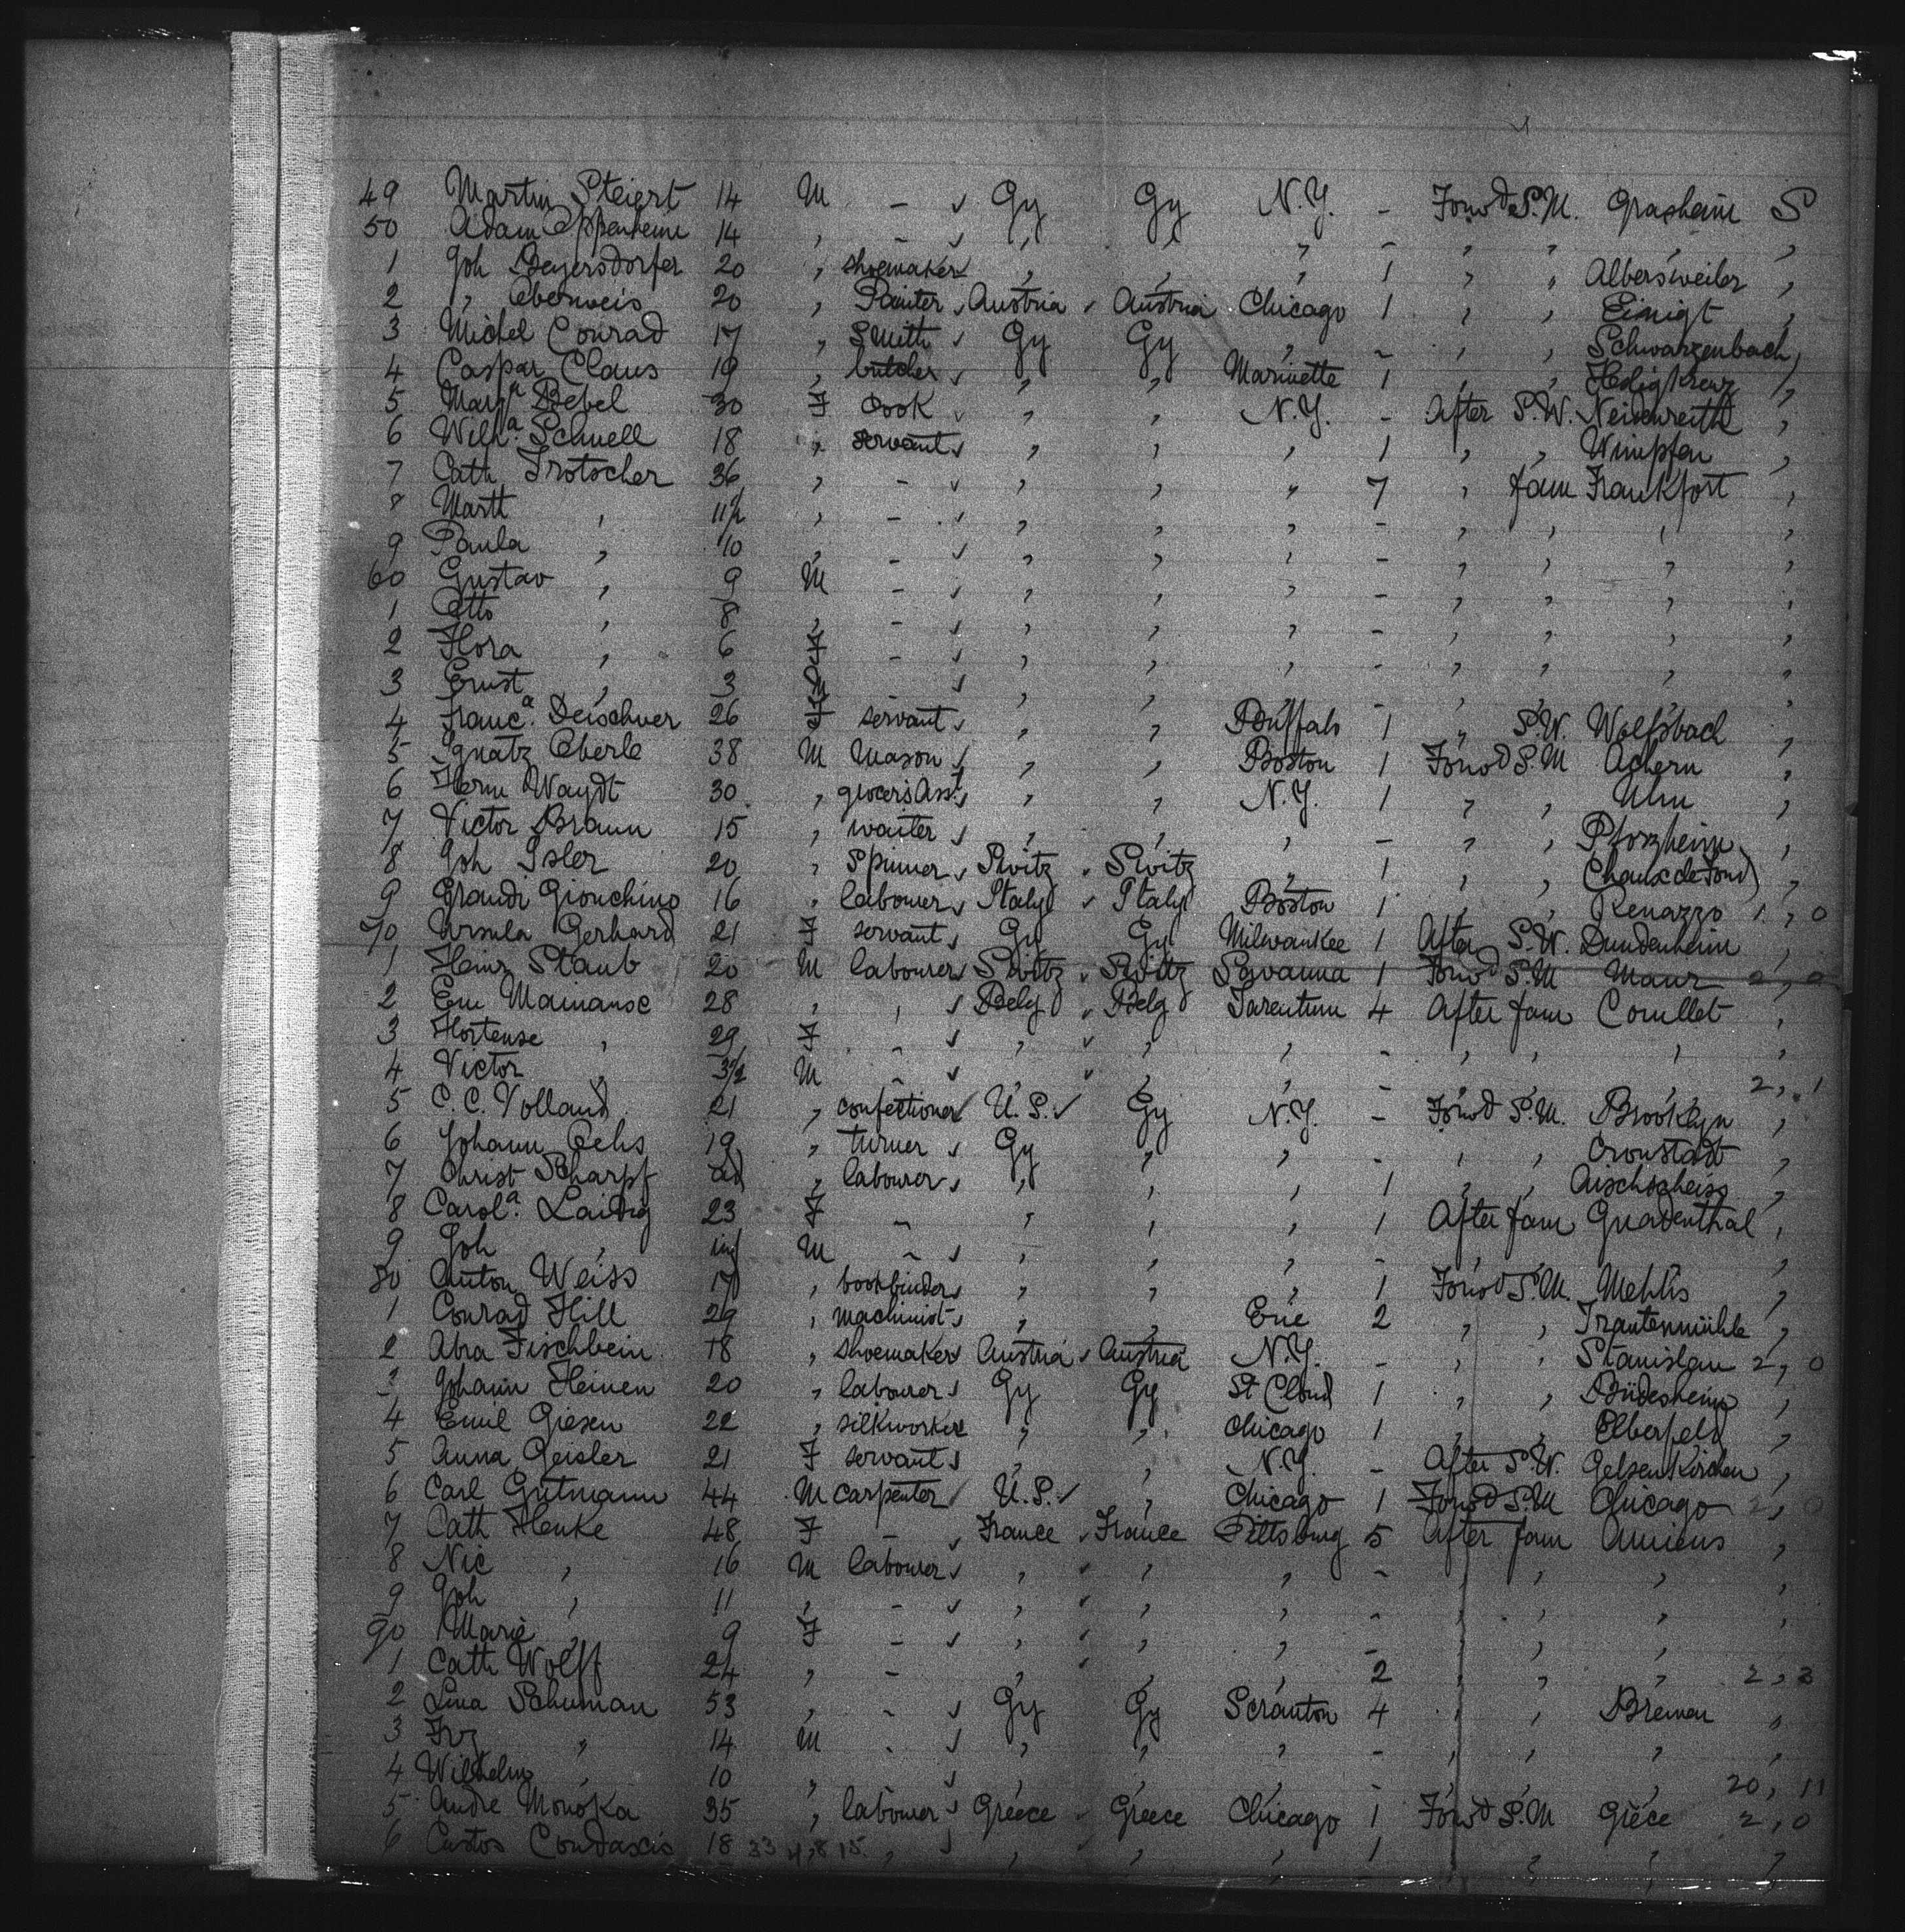 49 Martin Steiert 14 M - ✓ Gy Gy N.Y. - Forwd S.M. Grasheim S
50 Adam Oppenheim 14 , - ✓ , , , - , , , ,
1 Joh Beyersdorfer 20 , shoemaker ✓ , , , 1 , , Albersweiler ,
2 , Oberweis 20 , Painter ✓ Austria ✓ Austria Chicago 1 , , Einigt ,
3 Michel Conrad 17 , Smith ✓ Gy Gy , - , , Schwarzenbach ,
4 Caspar Claus 19 , butcher ✓ , , Marinette 1 , , Heiligkreuz ,
5 Marga Bebel 30 F cook ✓ , , N.Y. - After S.W. Neidenreith ,
6 Wilha. Schnell 18 , servant ✓ , , , 1 , , Wimpfen ,
7 Cath Trotscher 36 , - ✓ , , " 7 , fam Frankfort ,
8 Marth , 11/2 , - ✓ , , , - , , , ,
9 Paula , 10 , - ✓ , , , - , , , ,
60 Gustav , 9 M - ✓ , , , - , , , ,
1 Otto , 8 , - ✓ , , , - , , , ,
2 Flora , 6 F - ✓ , , , - , , , ,
3 Ernst , 3 M - ✓ , , , - , , , ,
4 Franca. Deischner 26 F servant ✓ , , Buffalo 1 " S.W. Wolfsbach ,
5 Ignatz Eberle 38 M mason ✓ , , Boston 1 Forwd S.M Achern ,
6 Herm Waydt 30 , grocers Asst ✓ , , N.Y. 1 , , Ulm ,
7 Victor Braun 15 , waiter ✓ , , , - , , Pforzheim ,
8 Joh Isler 20 , Spinner ✓ Switz ✓ Switz , 1 , , Chaux de Fond ,
9 Grandi Gionchino 16 , labourer ✓ Italy ✓ Italy Boston 1 , , Renazzo 1 , 0
70 Ursula Gerhard 21 F servant ✓ Gy Gy Milwaukee 1 After S.W. Dundenheim ,
1 Heinr Staub 20 M labourer ✓ Switz ✓ Switz Savanna 1 Forwd S.M Maur 2 , 0
2 Em Mainanse 28 , , ✓ Belg ✓ Belg Tarentum 4 After fam Coullet ,
3 Hortense , 29 F - ✓ , ✓ , , - , , , ,
4 Victor , 3/2 M - ✓ , ✓ , , - , , , 2 , 1
5 C. C. Volland 21 , confectioner ✓ U.S. ✓ Gy N.Y. - Forwd S.M. Brooklyn ,
6 Johann Oehs 19 , turner ✓ Gy , , - , , Cronstadt ,
7 Christ Scharpf ad , labourer ✓ , , , 1 , , Aischscheiss ,
8 Carola. Laidig 23 F - , , , 1 After fam Gnadenthal ,
9 Joh , inf M - ✓ , , , - , , , ,
80 Anton Weiss 17 , bookbinder ✓ , , , 1 Forwd S.M. Mehlis ,
1 Conrad Hill 29 , machinist ✓ , , Erie 2 , , Trautenmühle ,
2 Abra Fischbein 18 , shoemaker ✓ Austria ✓ Austria N.Y. - , , Stanislau 2 , 0
3 Johann Heinen 20 , labourer ✓ Gy Gy St Cloud 1 , , Büdesheim ,
4 Emil Giesen 22 , silkworker , , Chicago 1 , , Elberfeld ,
5 Anna Geisler 21 F servant ✓ , , N.Y. - After S.W. Gelsenkirchen ,
6 Carl Gutmann 44 M carpenter ✓ U.S. ✓ , Chicago 1 Forwd S.M Chicago 2 , 0
7 Cath Henke 48 F - ✓ France ✓ France Pittsburg 5 After fam Amiens ,
8 Nic , 16 M labourer ✓ , ✓ , , - , , , ,
9 Joh , 11 , - ✓ , ✓ , , - , , , ,
90 Marie , 9 F - ✓ , ✓ , , - , , , ,
1 Cath Wolff 24 , - , ✓ , , 2 , , , 2 , 3
2 Lina Schuman 53 , - ✓ Gy Gy Scranton 4 , , Bremen ,
3 Frz , 14 M - ✓ , , , - , , , ,
4 Wilhelm , 10 , ✓ , , , - , , , 20 , 11
5 Andre Monoka 35 , labourer ✓ Greece ✓ Greece Chicago 1 Forwd S.M Grece 2 , 0
6 Custos Condaxis 18 33 4,8 15 , ✓ , , , 1 , , , ,